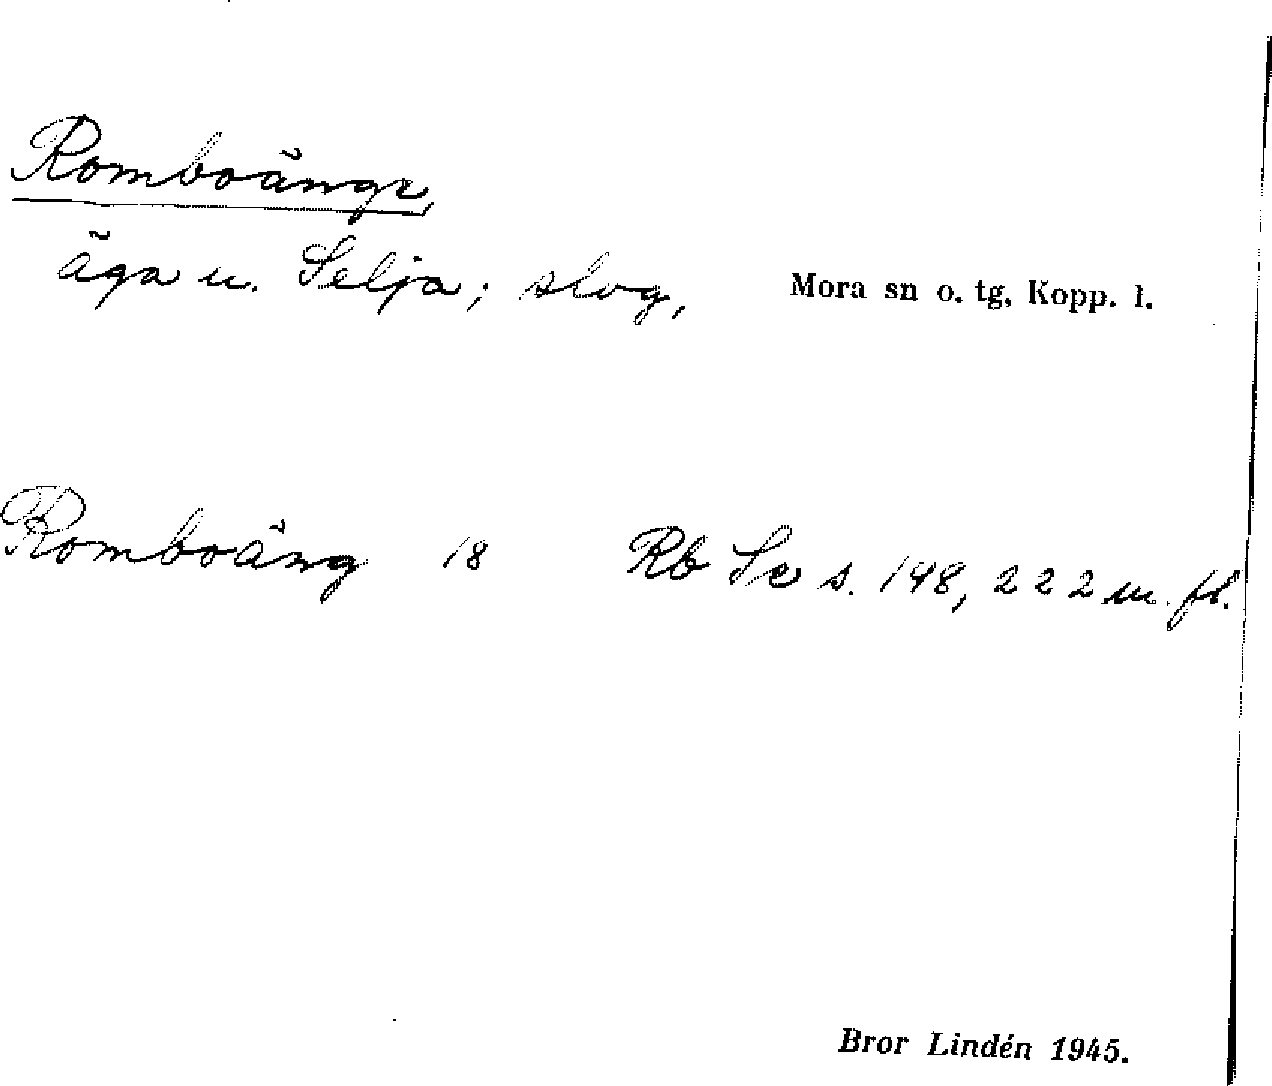 Romboänge,
äga u. Selja; slog,
Mora sn o. tg, Kopp. l.
Romboäng 18 Rb Se s. 148, 222 m. fl.
Bror Lindén 1945.